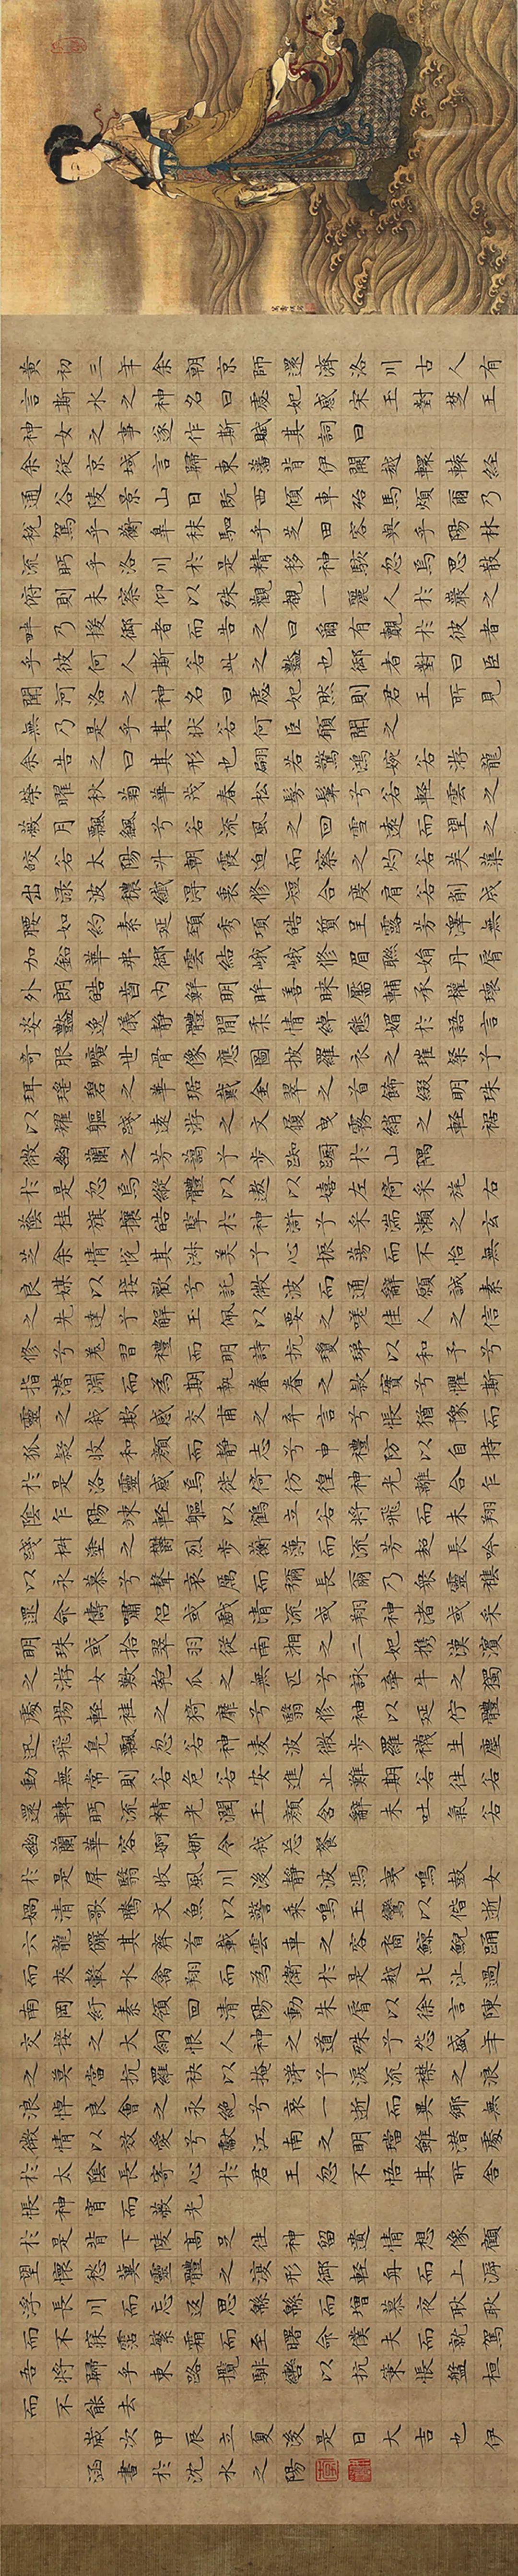 黄初三年余朝京師還濟洛川古人有
言斯水之神名曰處妃感宋玉對楚王
神女之事遂作斯賦其詞曰
余從京域言歸東藩背伊闕越轘轅經
通谷陵景山日既西傾車殆馬煩爾乃
税駕乎蘅皋秣駟乎芝田容與乎陽林
流眄乎洛川於是精移神駭忽焉思散
俯則未察仰以殊觀覩一麗人於巖之
畔乃援御者而告之曰爾有覿於彼者
乎彼何人斯若此之豔也御者對曰臣
聞河洛之神名曰處妃然則君王所見
無乃是乎其狀若何臣願聞之
余告之曰其形也翩若驚鴻婉若游龍
榮曜秋菊華茂春松髣髴兮若輕雲之
蔽月飄颻兮若流風之回雪遠而望之
皎若太陽升朝霞迫而察之灼若芙蕖
出淥波穠纖得衷修短合度肩若削成
腰如約素延頸秀項皓質呈露芳澤無
加鉛華弗御雲結峨峨修眉聯娟丹脣
外朗皓齒内鮮明眸善睞靨輔承權瓌
姿豔逸儀靜體閒柔情綽態媚於語言
奇服曠世骨像應圖披羅衣之璀粲兮
珥瑶碧之華琚戴金翠之首飾綴明珠
以耀軀踐遠游之文履曳霧綃之輕裾
微幽蘭之芳藹兮步踟蹰於山隅
於是忽焉縱體以遨以嬉左倚采旄右
蔭桂旗攘皓捥於神滸兮采湍瀨之玄
芝余情悦其淑美兮心振蕩而不怡無
良媒以接歡兮託微波而通辭願誠素
之先達兮解玉佩以要之嗟佳人之信
修兮羌習禮而明詩抗瓊珶以和予兮
指潛淵而為期執眷眷之款實兮懼斯
靈之我欺感交甫之弃言兮悵猶豫而
狐疑收和顔而静志兮申禮防以自持
於是洛靈感焉徙倚彷徨神光離合乍
陰乍陽竦輕軀以鶴立若將飛而未翔
踐椒塗之郁烈步蘅薄而流芳超長吟
以永慕兮聲哀厲而彌長爾乃衆靈雜
遝命儔嘯侣或戲清流或翔神渚或采
明珠或拾翠羽從南湘之二妃攜漢濱
之游女歎匏瓜之無匹兮詠牽牛之獨
處揚輕袿之猗靡兮翳修袖以延佇體
迅飛鳧飄忽若神凌波微步羅襪生塵
動無常則若危若安進止難期若往若
還轉眄流精光潤玉顔含辭未吐氣若
幽蘭華容婀娜令我忘餐
於是屏翳收風川後靜波馮夷鳴鼓女
媧清歌騰文魚以警乘鳴玉鸞以偕逝
六龍儼其齊首載雲車之容裔鯨鯢踊
而夾轂水禽翔而為衛於是越北沚過
南岡紆素領回清陽動朱脣以徐言陳
交接之大綱恨人神之道殊兮怨盛年
之莫當抗羅袂以掩涕兮淚流襟之浪
浪悼良會之永絶兮哀一逝而異鄉無
微情以效愛兮獻江南之明璫雖潛處
於太陰長寄心於君王忽不悟其所舍
悵神宵而蔽光
於是背下陵高足往神留遺情想像顧
望懷愁冀靈體之復形御輕舟而上溯
浮長川而忘返思綿綿而增慕夜耿耿
而不寐霑繁霜而至曙命僕夫而就駕
吾將歸乎東路攬騑轡以抗策悵盤桓
而不能去
歲次甲辰立夏後是日大吉也伊
涵書於沈水之陽